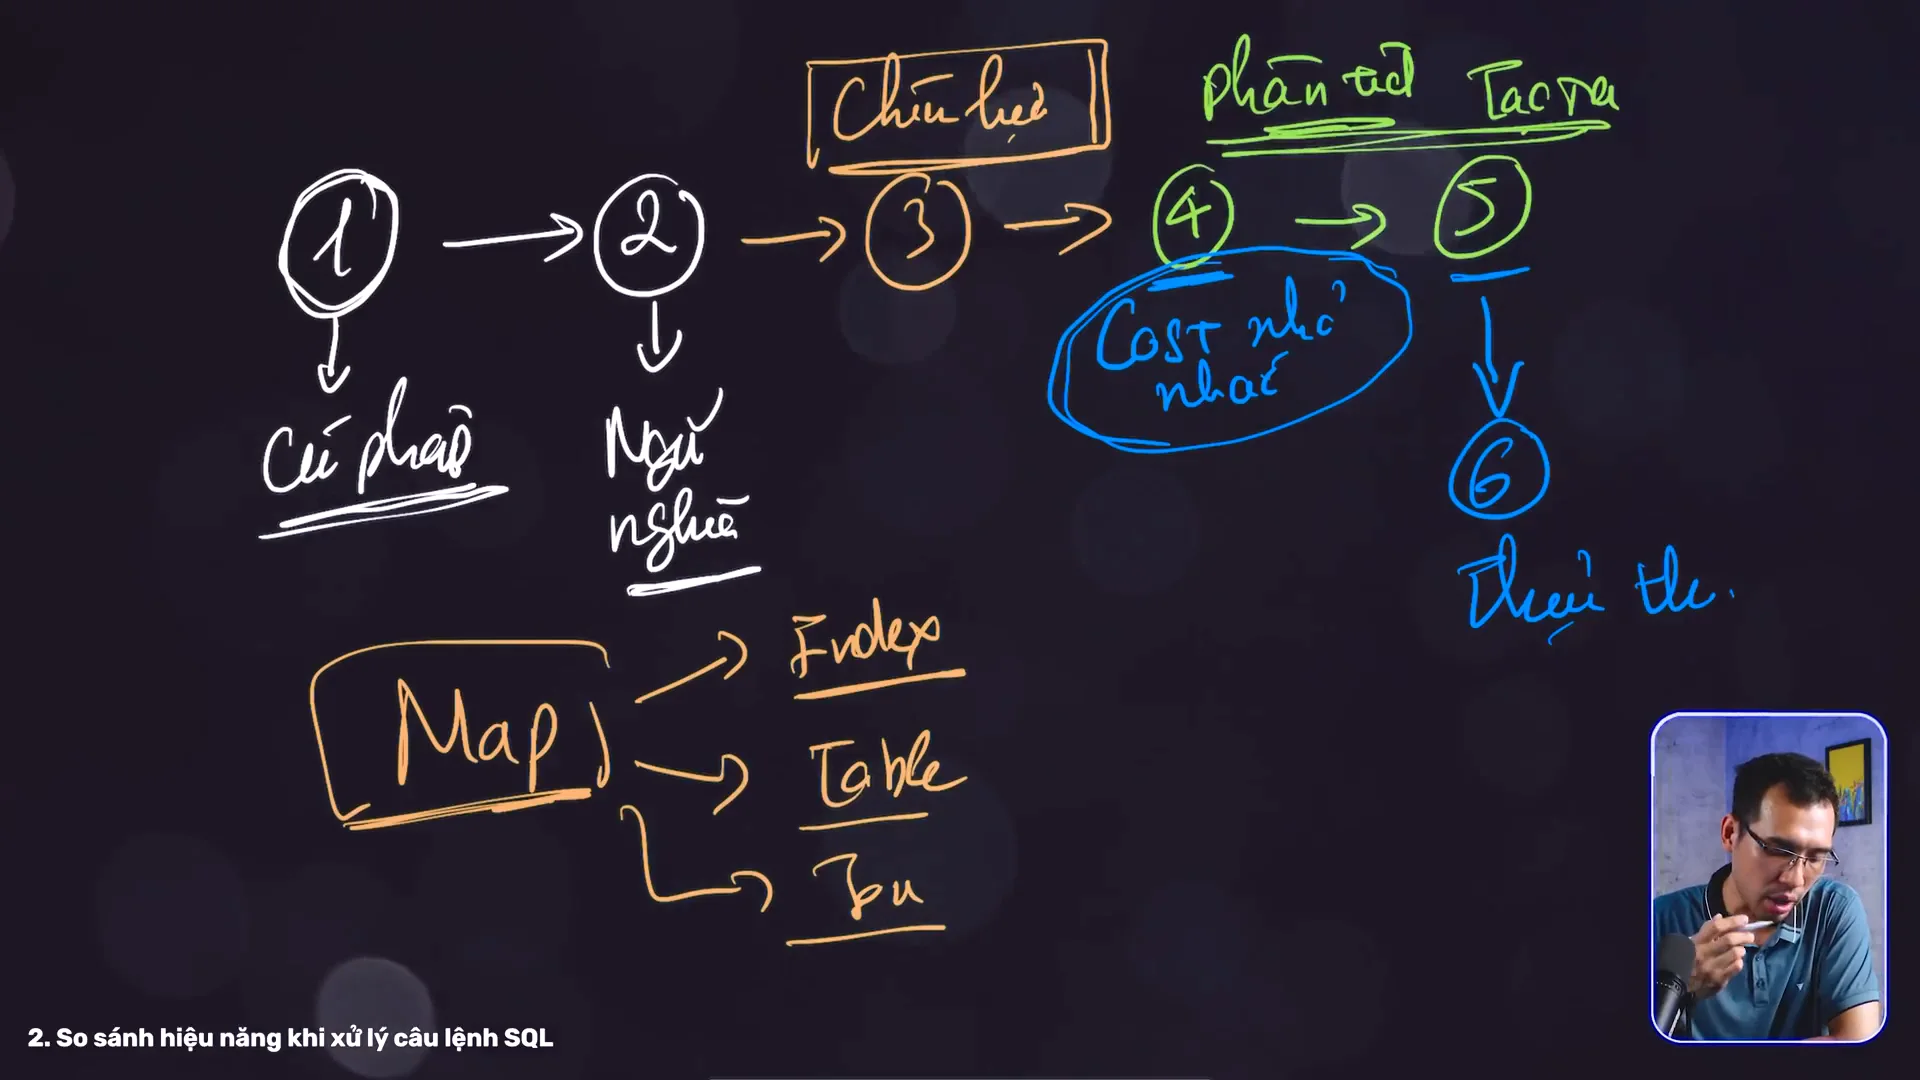 Chiến lược
phân tích Tạo ra
1 → 2 → 3 → 4 → 5
Cost nhỏ
nhất
Cú pháp
Ngữ
nghĩa
6
Thực thi.
Map
Index
Table
2. So sánh hiệu năng khi xử lý câu lệnh SQL